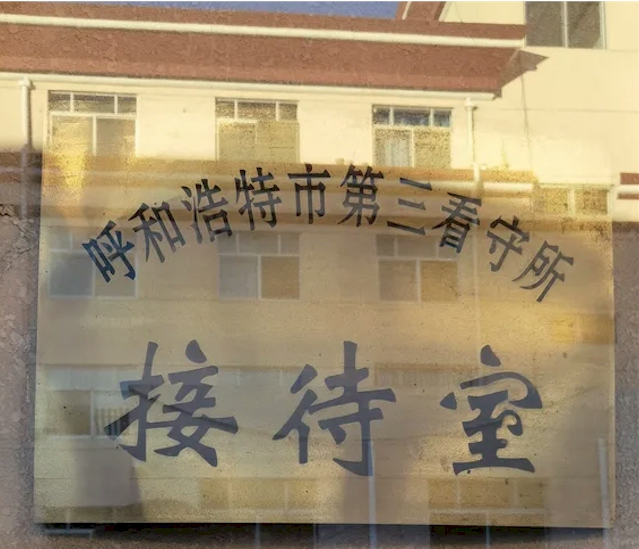 呼和浩特市第三看守所
接待室